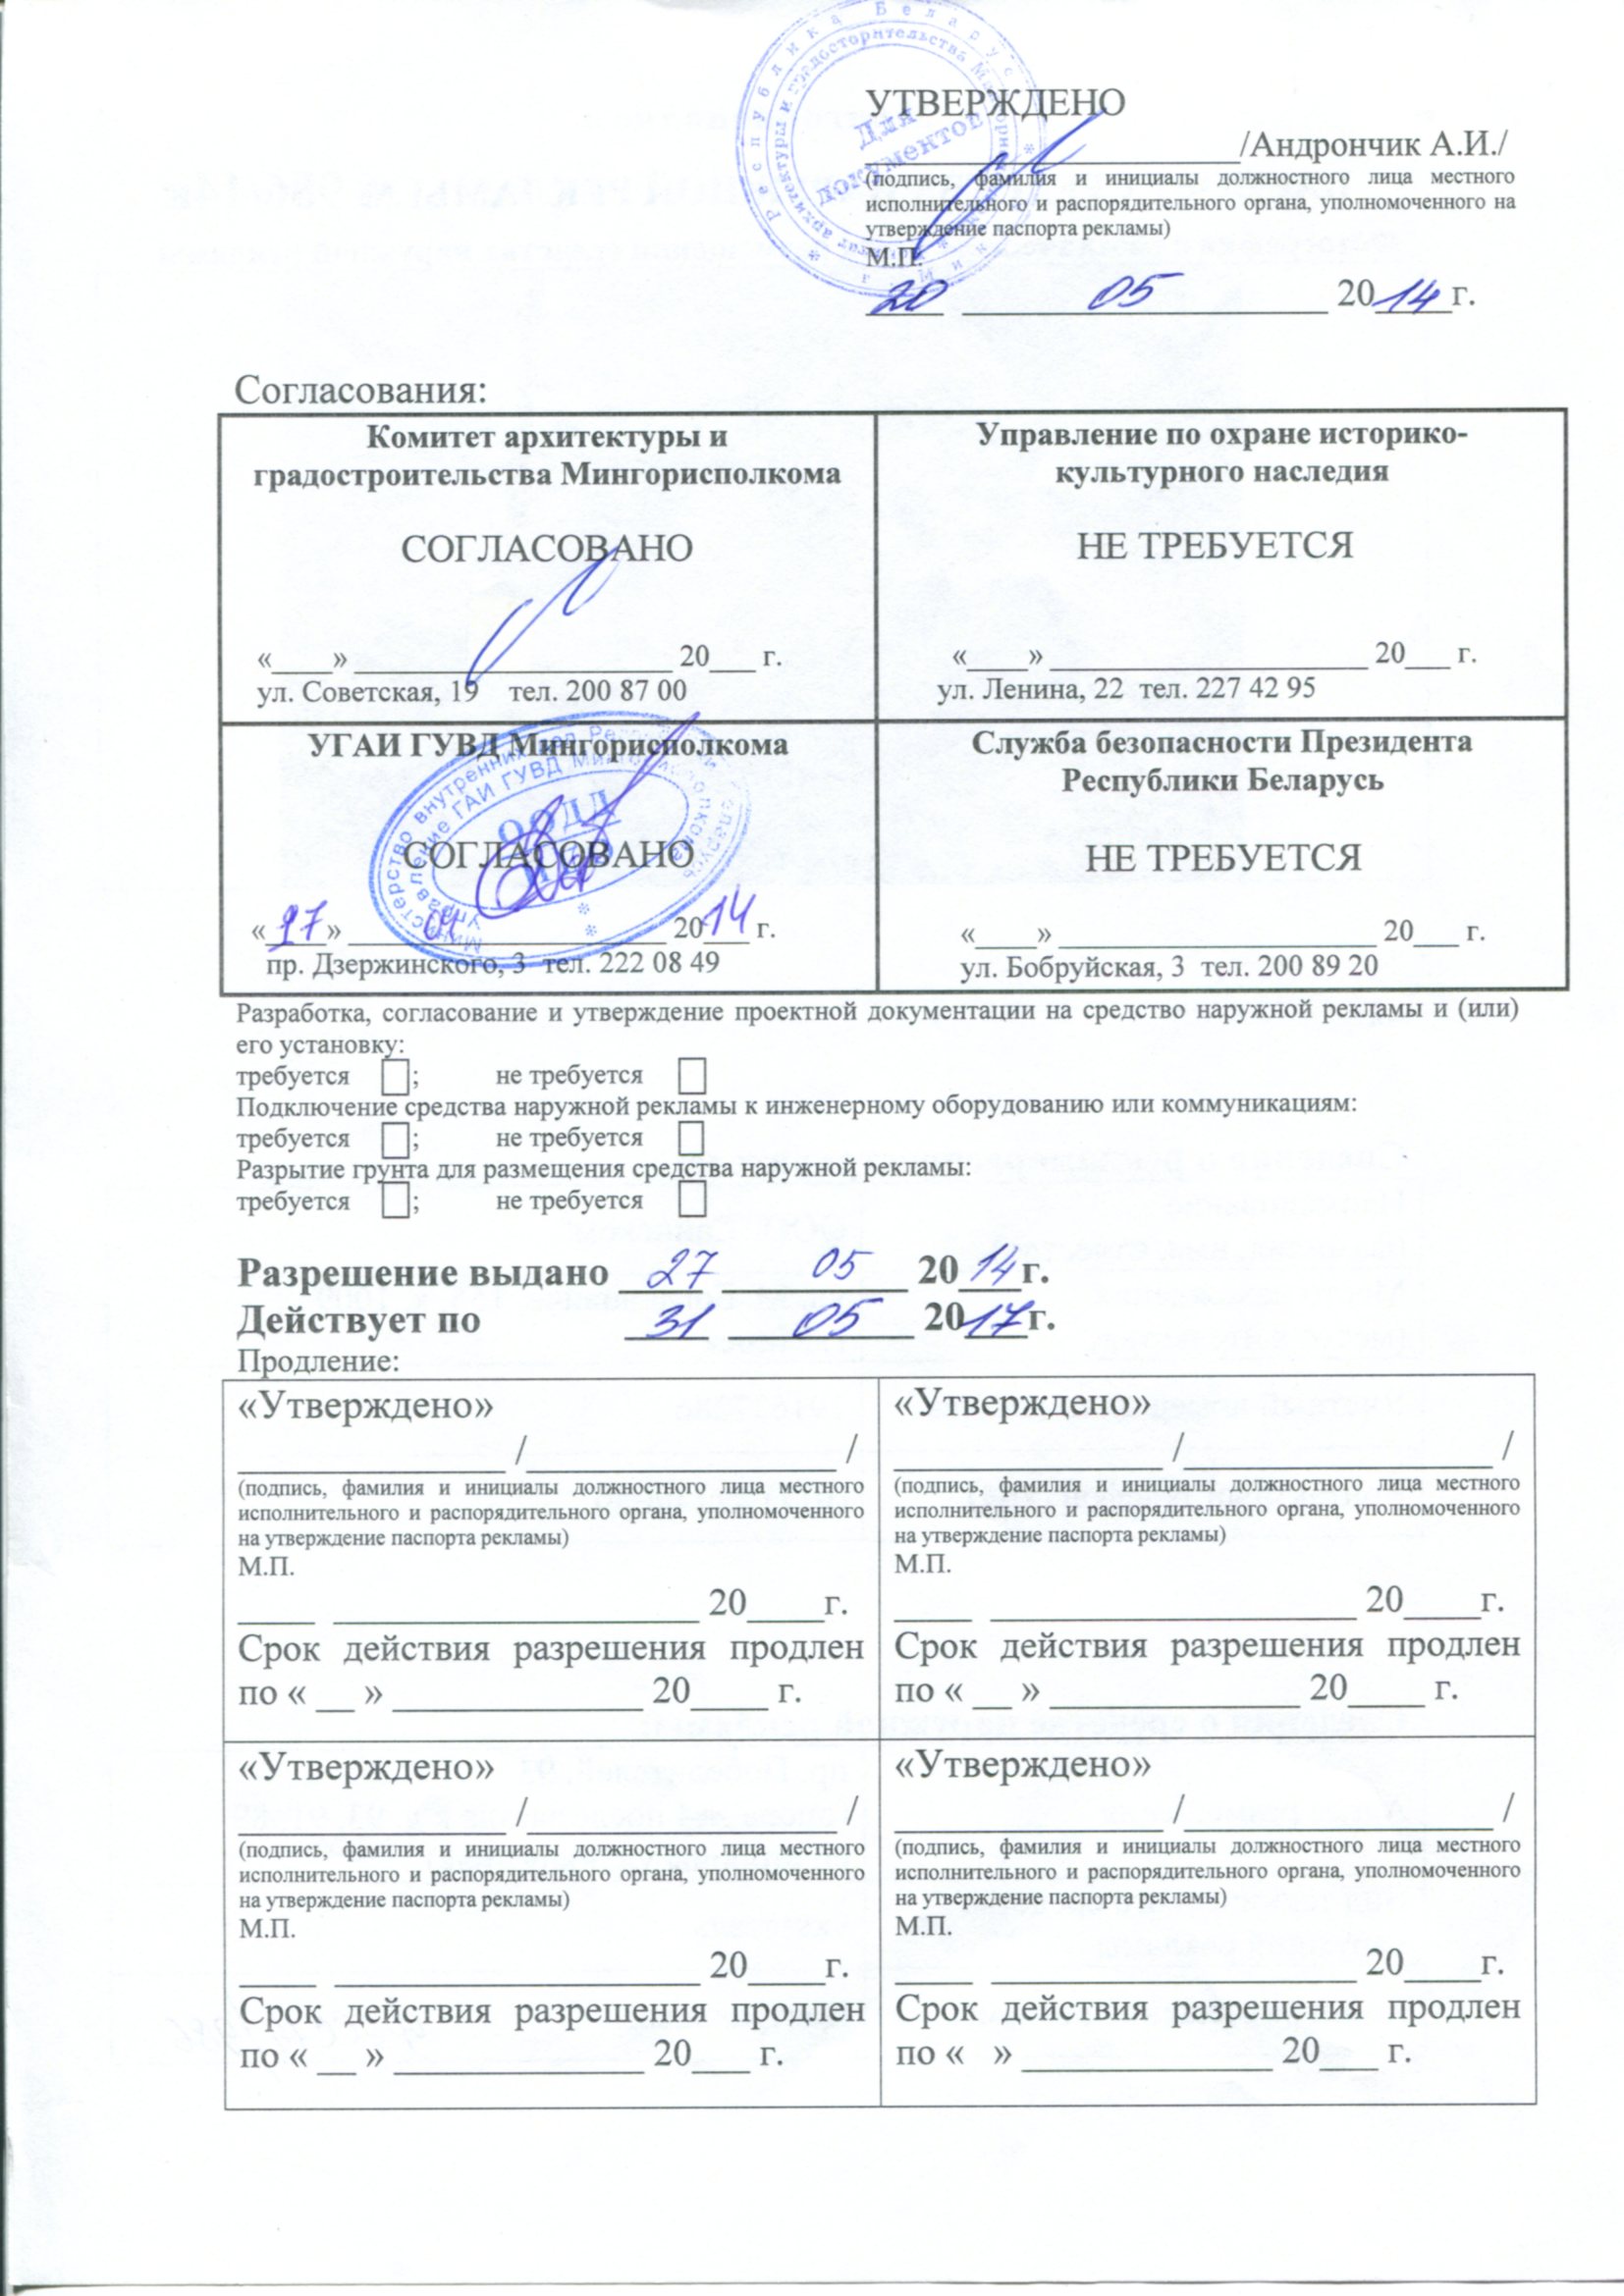 УТВЕРЖДЕНО
/Андрончик А.И./
(подпись, фамилия и инициалы должностного лица местного
исполнительного и распорядительного органа, уполномоченного на
утверждение паспорта рекламы)
М.П.
20 05 2014 г.
Для документов
Согласования:
Комитет архитектуры и
градостроительства Мингорисполкома
СОГЛАСОВАНО
«____» ____________ 20___ г.
ул. Советская, 19 тел. 200 87 00
Управление по охране историко-
культурного наследия
НЕ ТРЕБУЕТСЯ
«____» ____________ 20___ г.
ул. Ленина, 22 тел. 227 42 95
УГАИ ГУВД Мингорисполкома
СОГЛАСОВАНО
« » 2014 г.
пр. Дзержинского, 3 тел. 222 08 49
Министерство внутренних дел Республики Беларусь
Управление ГАИ ГУВД Мингорисполкома
Служба безопасности Президента
Республики Беларусь
НЕ ТРЕБУЕТСЯ
«____» ____________ 20___ г.
ул. Бобруйская, 3 тел. 200 89 20
Разработка, согласование и утверждение проектной документации на средство наружной рекламы и (или)
его установку:
требуется ; не требуется
Подключение средства наружной рекламы к инженерному оборудованию или коммуникациям:
требуется ; не требуется
Разрытие грунта для размещения средства наружной рекламы:
требуется ; не требуется
Разрешение выдано 27 05 2014г.
Действует по 31 05 2017г.
Продление:
«Утверждено»
____________ /____________ /
(подпись, фамилия и инициалы должностного лица местного
исполнительного и распорядительного органа, уполномоченного
на утверждение паспорта рекламы)
М.П.
____ ____________ 20____г.
Срок действия разрешения продлен
по « __ » ____________ 20____ г.
«Утверждено»
____________ /____________ /
(подпись, фамилия и инициалы должностного лица местного
исполнительного и распорядительного органа, уполномоченного
на утверждение паспорта рекламы)
М.П.
____ ____________ 20____г.
Срок действия разрешения продлен
по « __ » ____________ 20____ г.
«Утверждено»
____________ /____________ /
(подпись, фамилия и инициалы должностного лица местного
исполнительного и распорядительного органа, уполномоченного
на утверждение паспорта рекламы)
М.П.
____ ____________ 20____г.
Срок действия разрешения продлен
по « __ » ____________ 20___ г.
«Утверждено»
____________ /____________ /
(подпись, фамилия и инициалы должностного лица местного
исполнительного и распорядительного органа, уполномоченного
на утверждение паспорта рекламы)
М.П.
____ ____________ 20____г.
Срок действия разрешения продлен
по « » ____________ 20___ г.